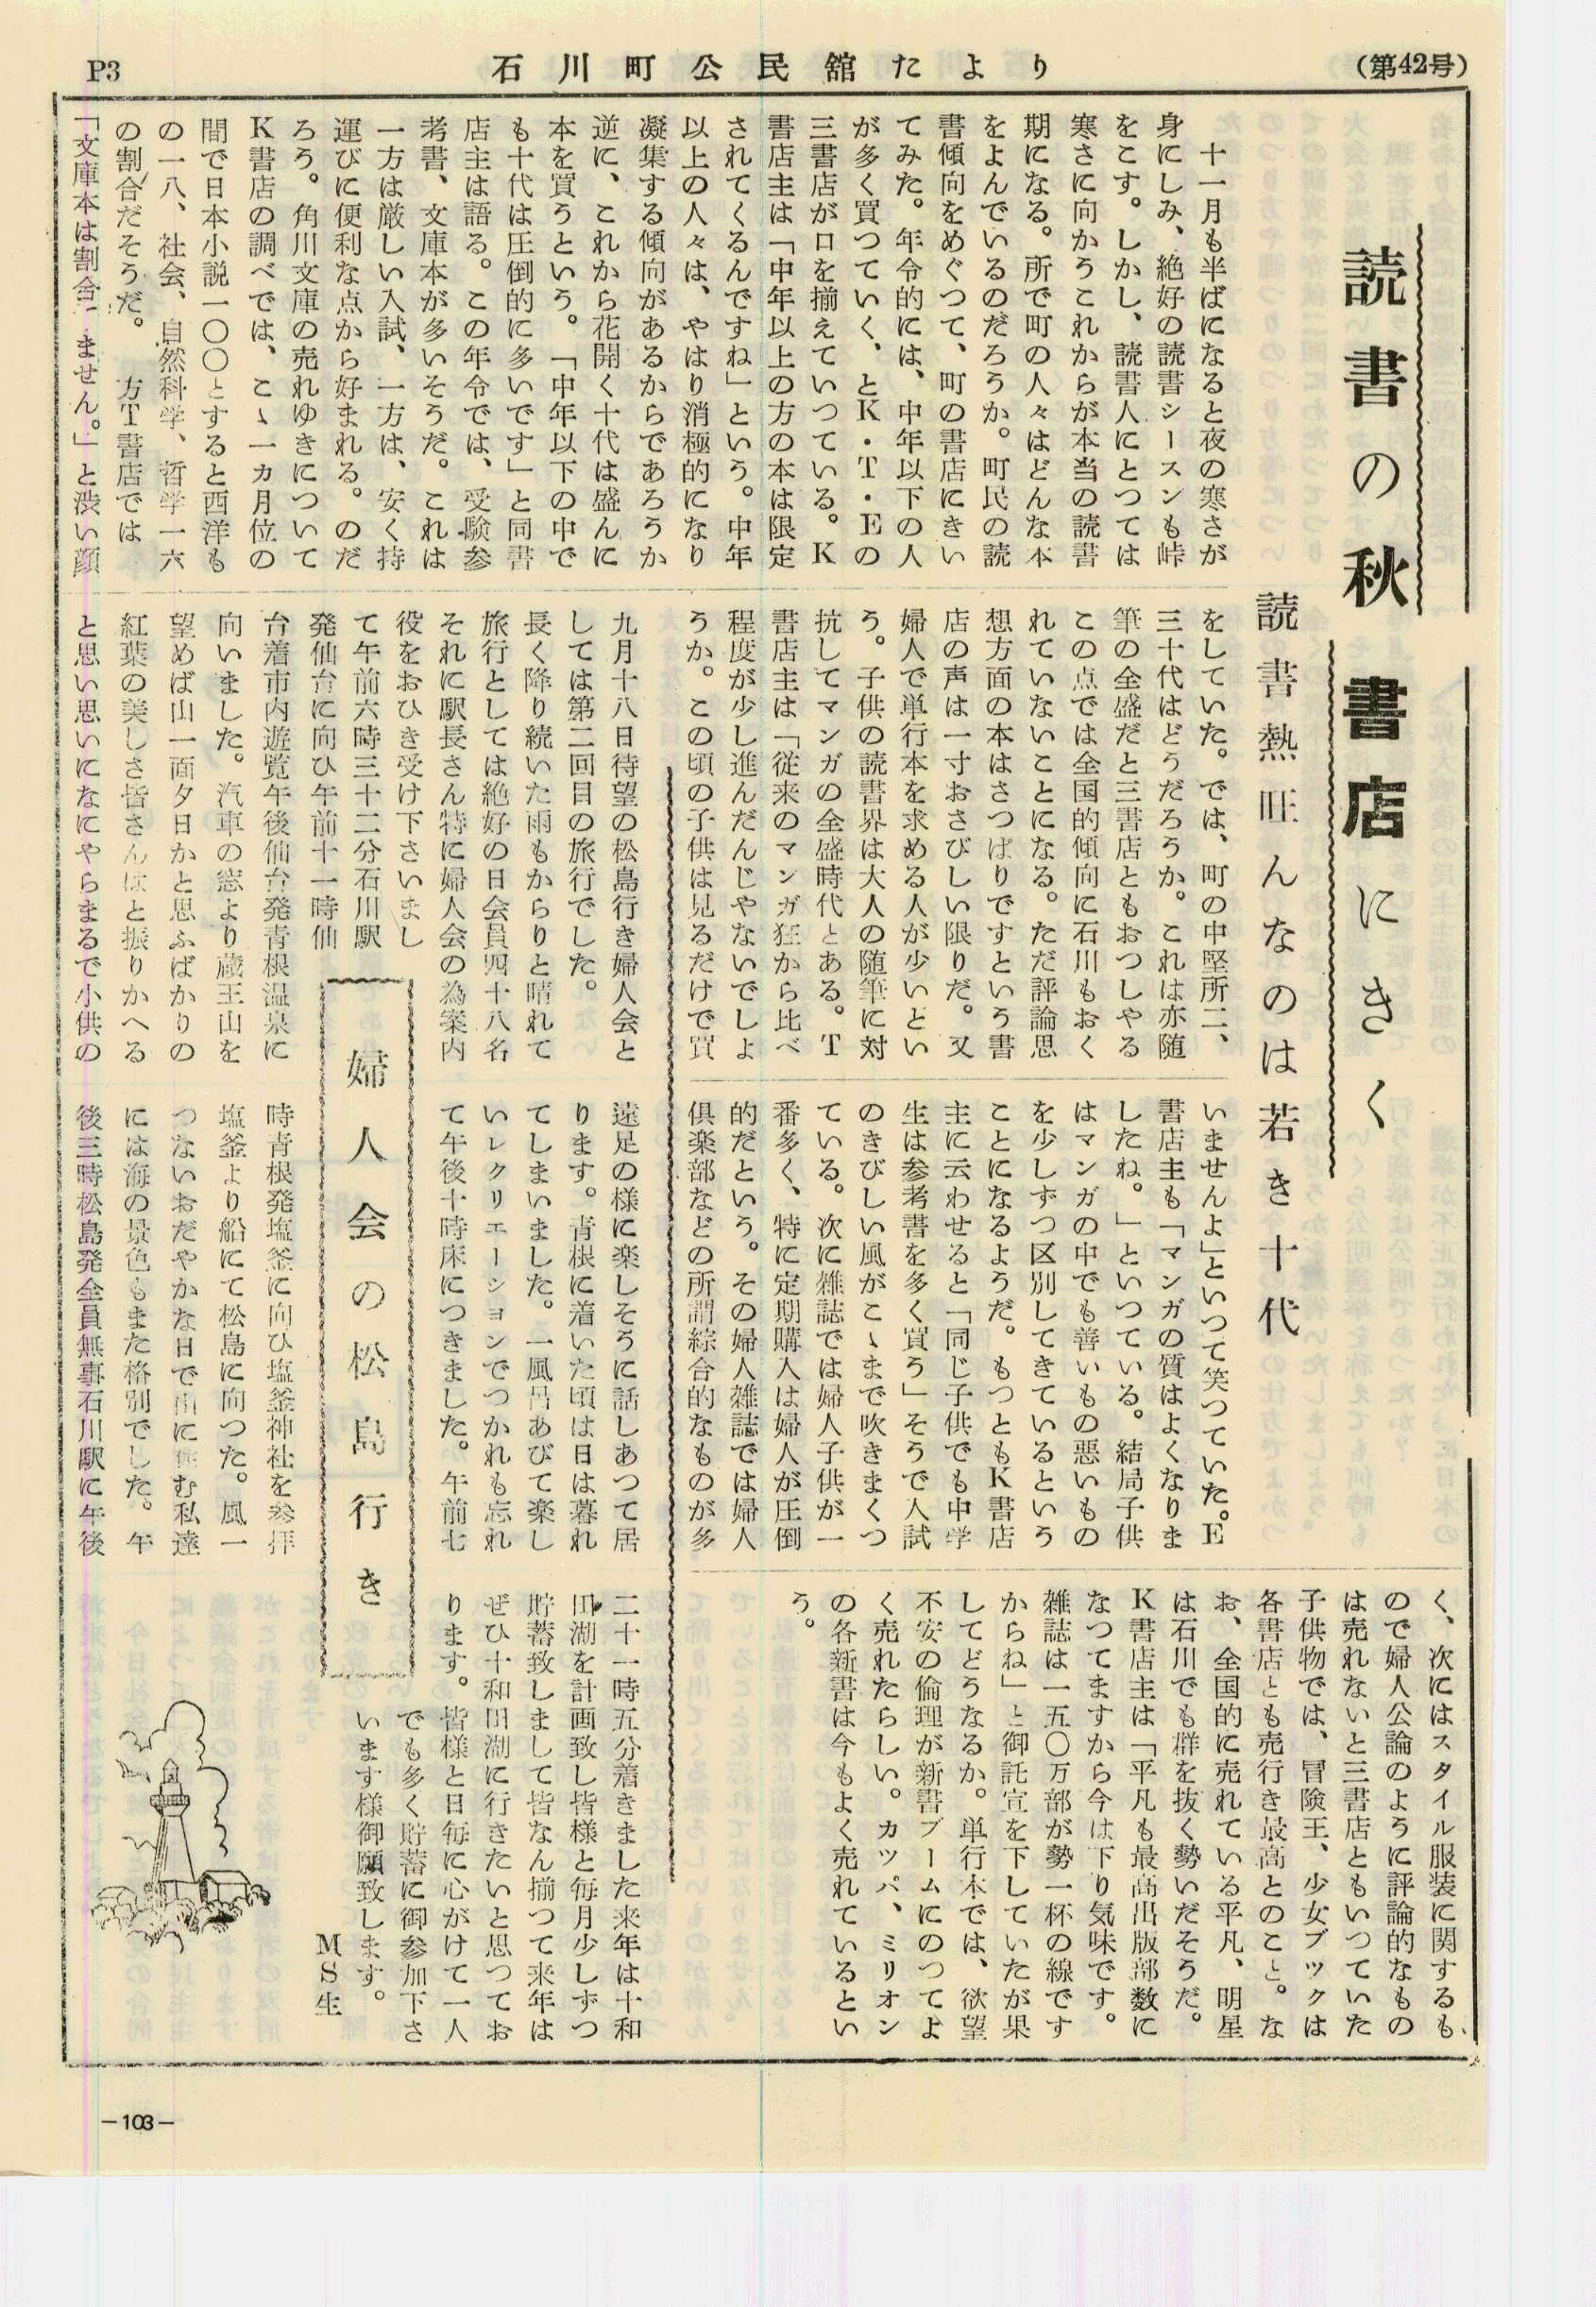 P3
石川町公民舘たより
(第42号)
読書の秋 書店にきく
読書熱旺んなのは若き十代
十一月も半ばになると夜の寒さが
身にしみ、絶好の読書シースンも峠
をこす。しかし、読書人にとつては
寒さに向かうこれからが本当の読書
期になる。所で町の人々はどんな本
をよんでいるのだろうか。町民の読
書傾向をめぐつて、町の書店にきい
てみた。年令的には、中年以下の人
が多く買つていく、とK・T・Eの
三書店が口を揃えていつている。K
書店主は「中年以上の方の本は限定
されてくるんですね」という。中年
以上の人々は、やはり消極的になり
凝集する傾向があるからであろうか
逆に、これから花開く十代は盛んに
本を買うという。「中年以下の中で
も十代は圧倒的に多いです」と同書
店主は語る。この年令では、受験参
考書、文庫本が多いそうだ。これは
一方は厳しい入試、一方は、安く持
運びに便利な点から好まれる。のだ
ろう。角川文庫の売れゆきについて
K書店の調べでは、こゝ一カ月位の
間で日本小説一〇〇とすると西洋も
の一八、社会、自然科学、哲学一六
の割合だそうだ。 方T書店では
「文庫本は割合 ません。」と渋い顔
をしていた。では、町の中堅所二、
三十代はどうだろうか。これは亦随
筆の全盛だと三書店ともおつしやる
この点では全国的傾向に石川もおく
れていないことになる。ただ評論思
想方面の本はさつぱりですという書
店の声は一寸おさびしい限りだ。又
婦人で単行本を求める人が少いとい
う。子供の読書界は大人の随筆に対
抗してマンガの全盛時代とある。T
書店主は「従来のマンガ狂から比べ
程度が少し進んだんじやないでしよ
うか。この頃の子供は見るだけで買
いませんよ」といつて笑つていた。E
書店主も「マンガの質はよくなりま
したね。」といつている。結局子供
はマンガの中でも善いもの悪いもの
を少しずつ区別してきているという
ことになるようだ。もつともK書店
主に云わせると「同じ子供でも中学
生は参考書を多く買う」そうで入試
のきびしい風がこゝまで吹きまくつ
ている。次に雑誌では婦人子供が一
番多く、特に定期購入は婦人が圧倒
的だという。その婦人雑誌では婦人
倶楽部などの所謂綜合的なものが多
く、次にはスタイル服装に関するも
ので婦人公論のように評論的なもの
は売れないと三書店ともいつていた
子供物では、冒険王、少女ブックは
各書店とも売行き最高とのこと。な
お、全国的に売れている平凡、明星
は石川でも群を抜く勢いだそうだ。
K書店主は「平凡も最高出版部数に
なつてますから今は下り気味です。
雑誌は一五〇万部が勢一杯の線です
からね」と御託宣を下していたが果
してどうなるか。単行本では、欲望
不安の倫理が新書ブームにのつてよ
く売れたらしい。カッパ、ミリオン
の各新書は今もよく売れているとい
う。
婦人会の松島行き
九月十八日待望の松島行き婦人会と
しては第二回目の旅行でした。
長く降り続いた雨もからりと晴れて
旅行としては絶好の日会員四十八名
それに駅長さん特に婦人会の為案内
役をおひき受け下さいまし
て午前六時三十二分石川駅
発仙台に向ひ午前十一時仙
台着市内遊覧午後仙台発青根温泉に
向いました。汽車の窓より蔵王山を
望めば山一面夕日かと思ふばかりの
紅葉の美しさ皆さんほと振りかへる
と思い思いになにやらまるで小供の
遠足の様に楽しそうに話しあつて居
ります。青根に着いた頃は日は暮れ
てしまいました。一風呂あびて楽し
いレクリエーションでつかれも忘れ
て午後十時床につきました。午前七
時青根発塩釜に向ひ塩釜神社を参拝
塩釜より船にて松島に向つた。風一
つないおだやかな日で山に住む私達
には海の景色もまた格別でした。午
後三時松島発全員無事石川駅に午後
二十一時五分着きました来年は十和
田湖を計画致し皆様と毎月少しずつ
貯蓄致しまして皆なん揃つて来年は
ぜひ十和田湖に行きたいと思つてお
ります。皆様と日毎に心がけて一人
でも多く貯蓄に御参加下さ
います様御願致します。
MS生
—103—